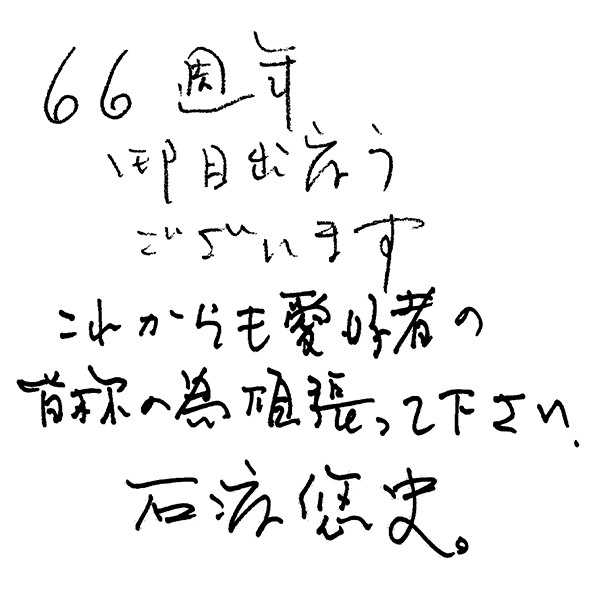 66週年
御目出度う
ございます
これからも愛好者の
皆称の為頑張って下さい.
石渡悠史。